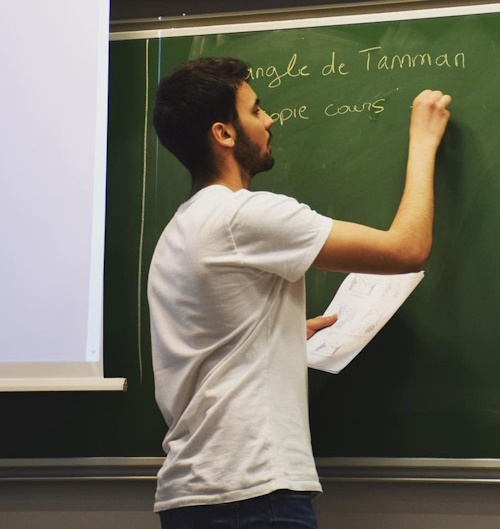 angle de Tamman
opie cours